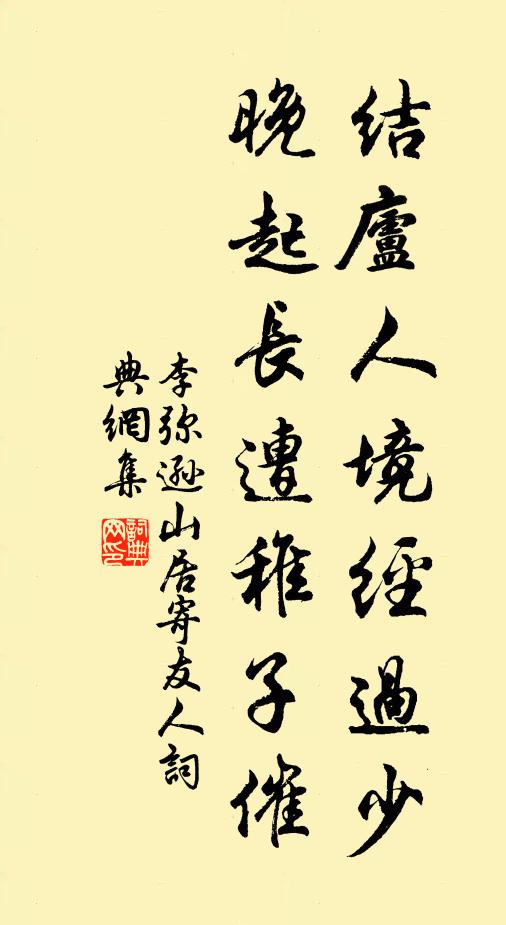 結廬人境經過少
晚起長遭稚子催
李弥遜山居寄友人詞
典網集
詞典網印